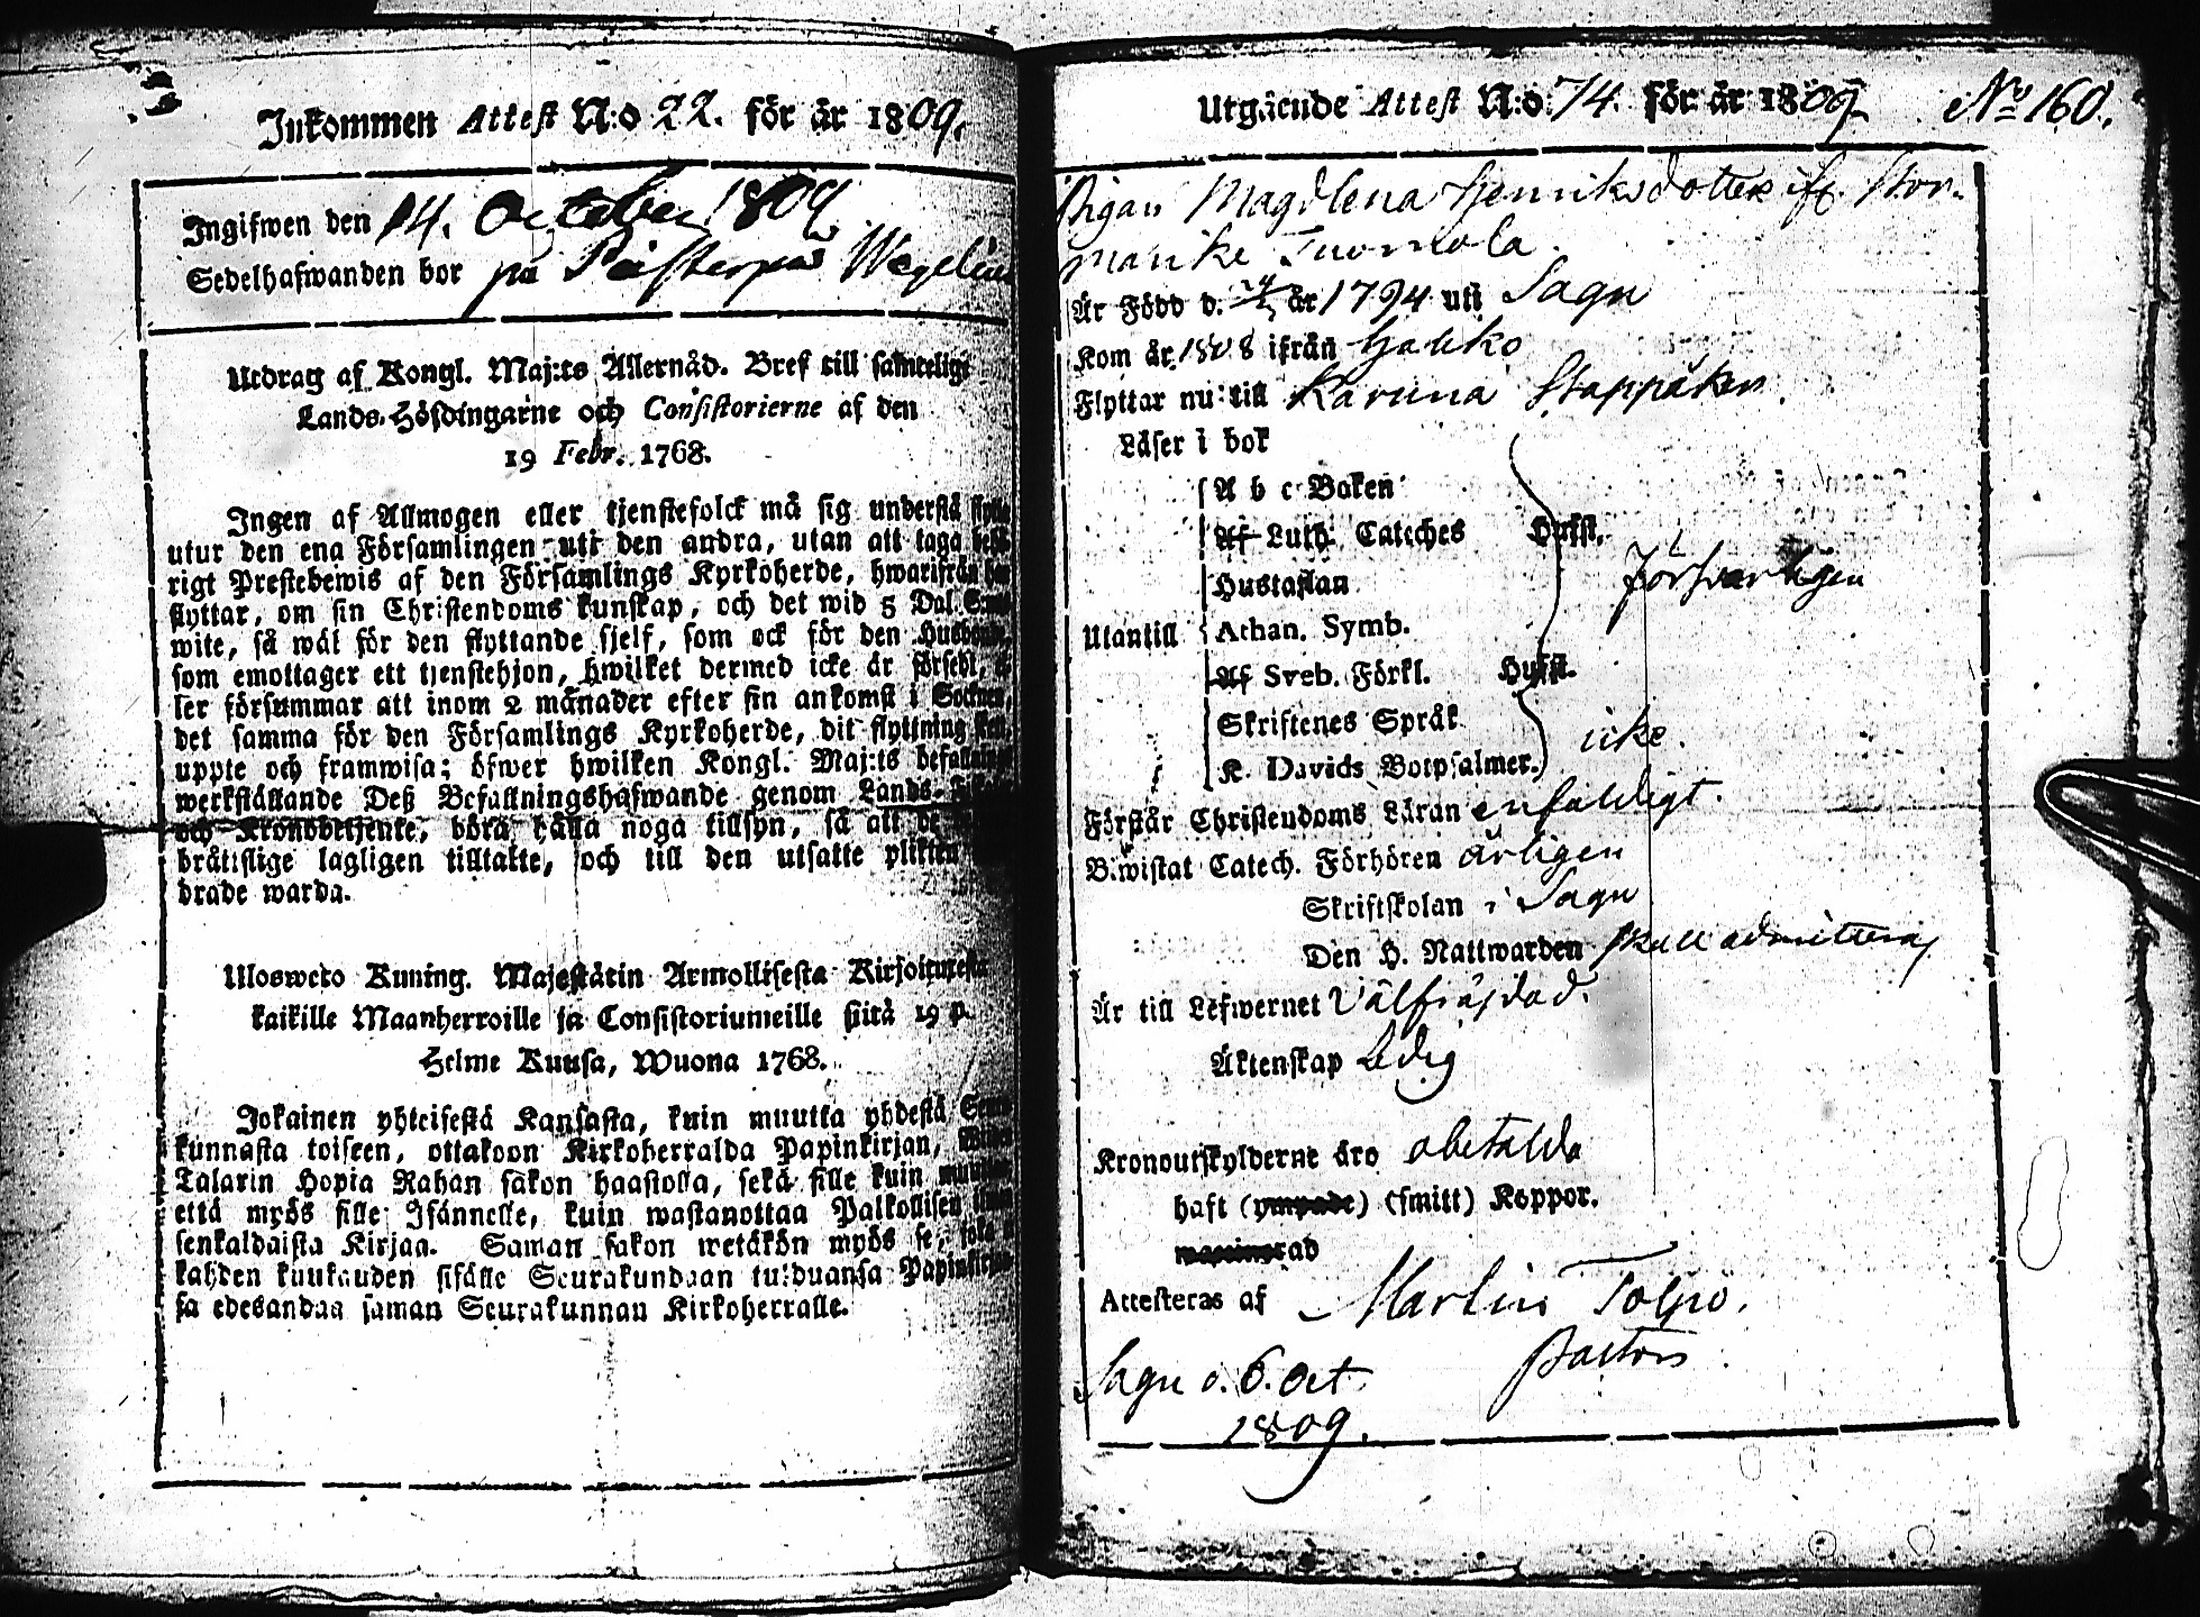 Inkommen Attest N:o 22. för år 1809.
Ingifwen den 14. October 1809
Sedelhafwanden bor på Wegelius
Utdrag af Kongl. Maj:ts Allernåd. Bref till samtelige
Lands-Höfdingarne och Consistorierne af den
19 Febr. 1768.
Ingen af Allmogen eller tjenstefolck må sig understå flytta
utur den ena Församlingen uti den andra, utan att taga behö-
rigt Prestebewis af den Församlings Kyrkoherde, hwarifrån han
flyttar, om sin Christendoms kunskap, och det wid 5 Dal. S:mts
wite, så wäl för den flyttande sjelf, som ock för den Husbonde,
som emottager ett tjenstehjon, hwilket dermed icke är försedt, el-
ler försummar att inom 2 månader efter sin ankomst i Socknen,
det samma för den Församlings Kyrkoherde, dit flyttning skett,
uppte och framwisa; öfwer hwilken Kongl. Maj:ts befallnings
werkställande Deß Befallningshafwande genom Lands-
och Kronobetjente, böra hålla noga tillsyn, så att de
bråttslige lagligen tilltalte, och till den utsatte plikten
drade warda.
Ulosweto Kuning. Majestätin Armollisesta Kirjoituxesta
kaikille Maanherroille ja Consistoriumeille siitä 19 p.
Helme Kuusa, Wuona 1768.
Jokainen yhteisestä Kansasta, kuin muutta yhdestä Seura-
kunnasta toiseen, ottakoon Kirkoherralda Papinkirjan,
Talarin Hopia Rahan sakon haastolla, sekä sille kuin muuttaa
että myös sille Isännelle, kuin wastanottaa Palkollisen ilman
senkaldaista Kirjaa. Saman sakon wetäkön myös se, joka ei
kahden kuukauden sisälle Seurakundaan tulduansa Papinkirjaan-
sa edesandaa saman Seurakunnan Kirkoherralle.
Utgående Attest N:o 74. för år 1809 No 160.
Pigan Magdlena Henriksdotter ifr. Stor-
marike Tuomola.
Är Född d. år 1794 uti Sagu
Kom år 1808 ifrån Haliko
Flyttar nu till Karuna Stappåker.
Läser i bok
A b c Boken
Af Luth. Cateches Hufst.
Hustaflan
försvarligen
Utantill Athan. Symb.
Af Sveb. Förkl. Hufst.
Skriftenes Språk
icke.
K. Davids Botpsalmer.
Förstår Christendoms Läran enfaldigt.
Biwistat Catech. Förhören årligen
Skriftskolan i Sagu
Den H. Nattwarden skall admitteras
Är till Lefwernet Välfräjdad.
Äktenskap Ledig
Kronoutskylderne äro obetalda
haft (ympade) (smitt) Koppor.
vaccinerad
Attesteras af Martin Tolpo.
Pastor.
Sagu d. 6. Oct
1809.